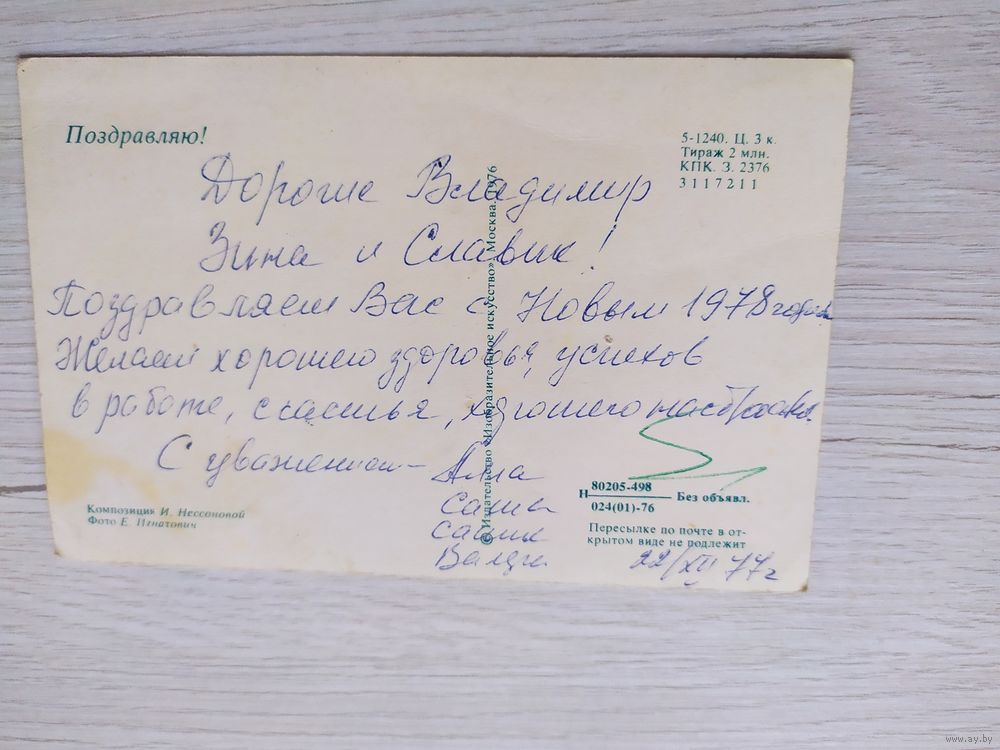 Поздравляю!
5-1240. Ц. 3 к.
Тираж 2 млн.
КПК. З. 2376
3117211
Дорогие Владимир
Зина и Славик!
Поздравляем Вас с Новым 1978 годом
Желаем хорошего здоровья, успехов
в работе, счастья, хорошего настроения.
С уважением – Алла
Саша
Сашик
© Издательство «Изобразительное искусство». Москва. 1976
Композиция И. Нессоновой
Фото Е. Игнатович
Н 80205-498 Без объявл.
024(01)-76
Пересылке по почте в от-
крытом виде не подлежит
22/XII 77 г
www.ay.by